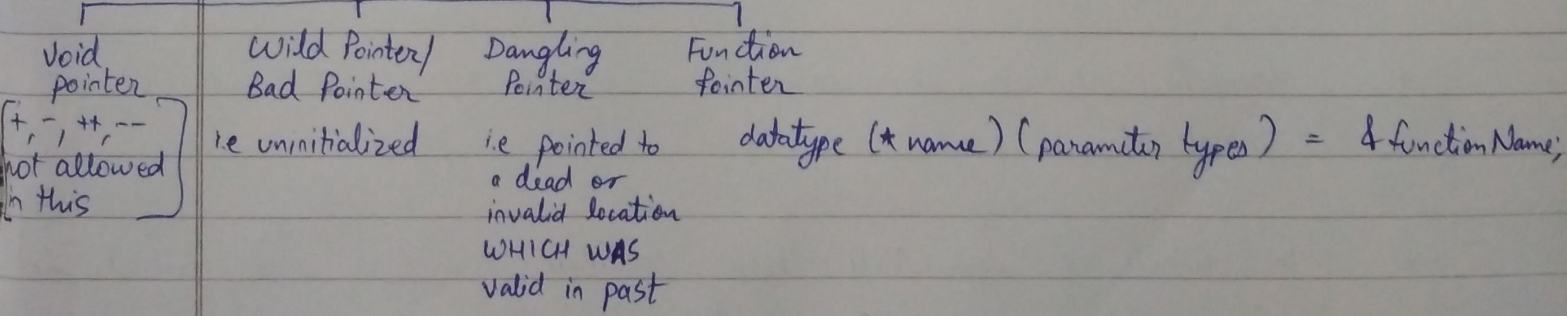 Void
pointer
[+, -, ++, --
not allowed
in this]
Wild Pointer/
Bad Pointer
i.e uninitialized
Dangling
Pointer
i.e pointed to
a dead or
invalid location
WHICH WAS
valid in past
Function
Pointer
datatype (* name) (parameter types) = & functionName;